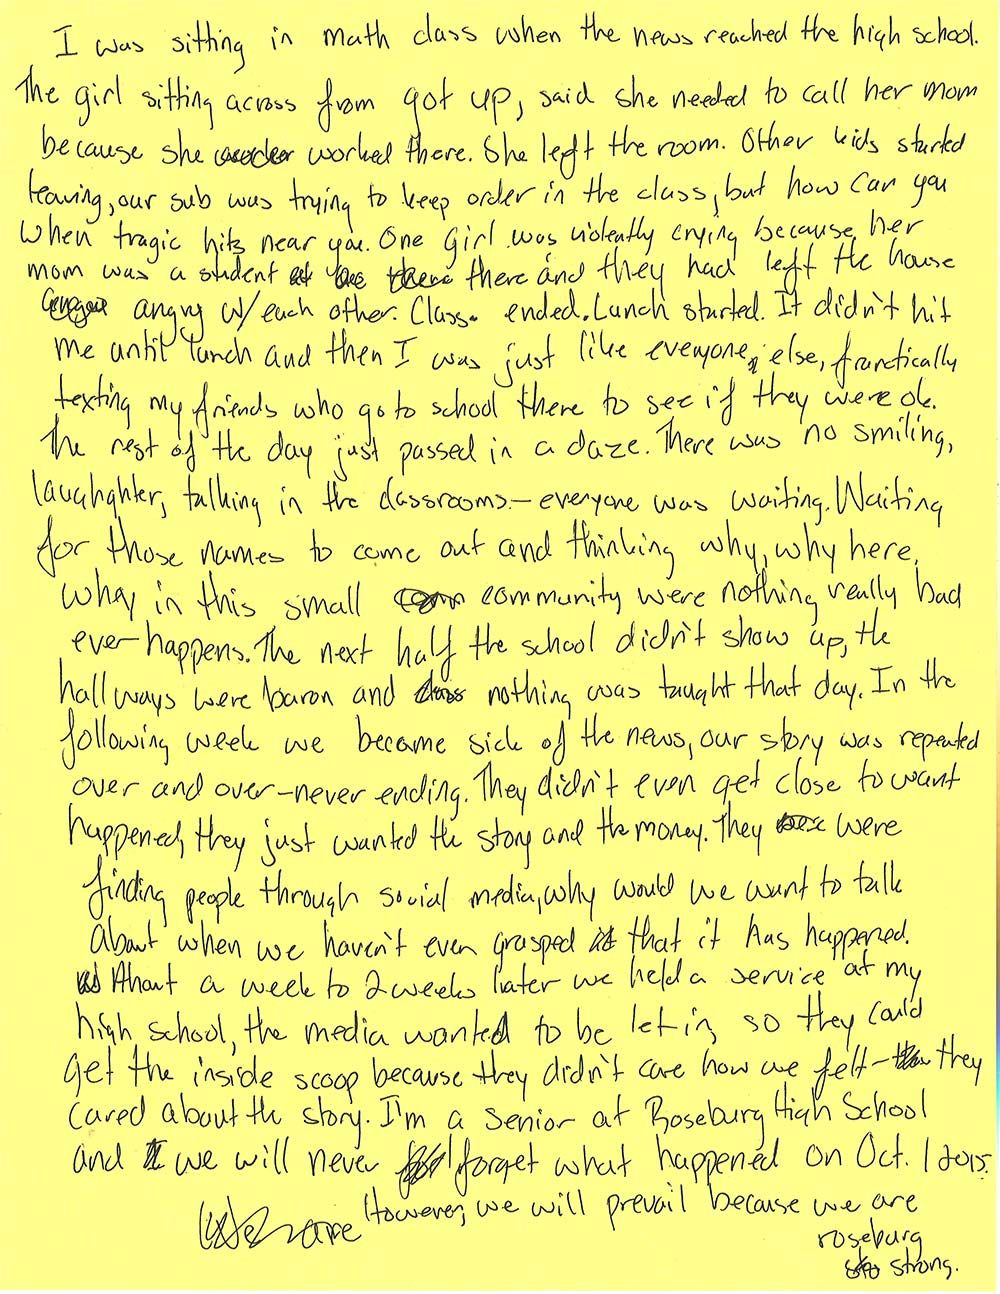 I was sitting in math class when the news reached the high school.
The girl sitting across from got up, said she needed to call her mom
because she worked there. She left the room. Other kids started
leaving, our sub was trying to keep order in the class, but how can you
when tragic hits near you. One girl was violently crying because her
mom was a student there and they had left the house
angry w/each other. Class ended. Lunch started. It didn't hit
me until lunch and then I was just like everyone else, franctically
texting my friends who go to school there to see if they were ok.
The rest of the day just passed in a daze. There was no smiling,
laughghter, talking in the classrooms - everyone was waiting. Waiting
for those names to come out and thinking why, why here,
why in this small community were nothing really bad
ever happens. The next half the school didn't show up, the
hallways were baron and nothing was taught that day. In the
following week we became sick of the news, our story was repeated
over and over - never ending. They didn't even get close to want
happened, they just wanted the story and the money. They were
finding people through social media, why would we want to talk
about when we haven't even grasped that it has happened.
About a week to 2 weeks later we held a service at my
high school, the media wanted to be let in, so they could
get the inside scoop because they didn't care how we felt - they
cared about the story. I'm a senior at Roseburg High School
and we will never forget what happened on Oct. 1 2015.
However, we will prevail because we are
roseburg
strong.